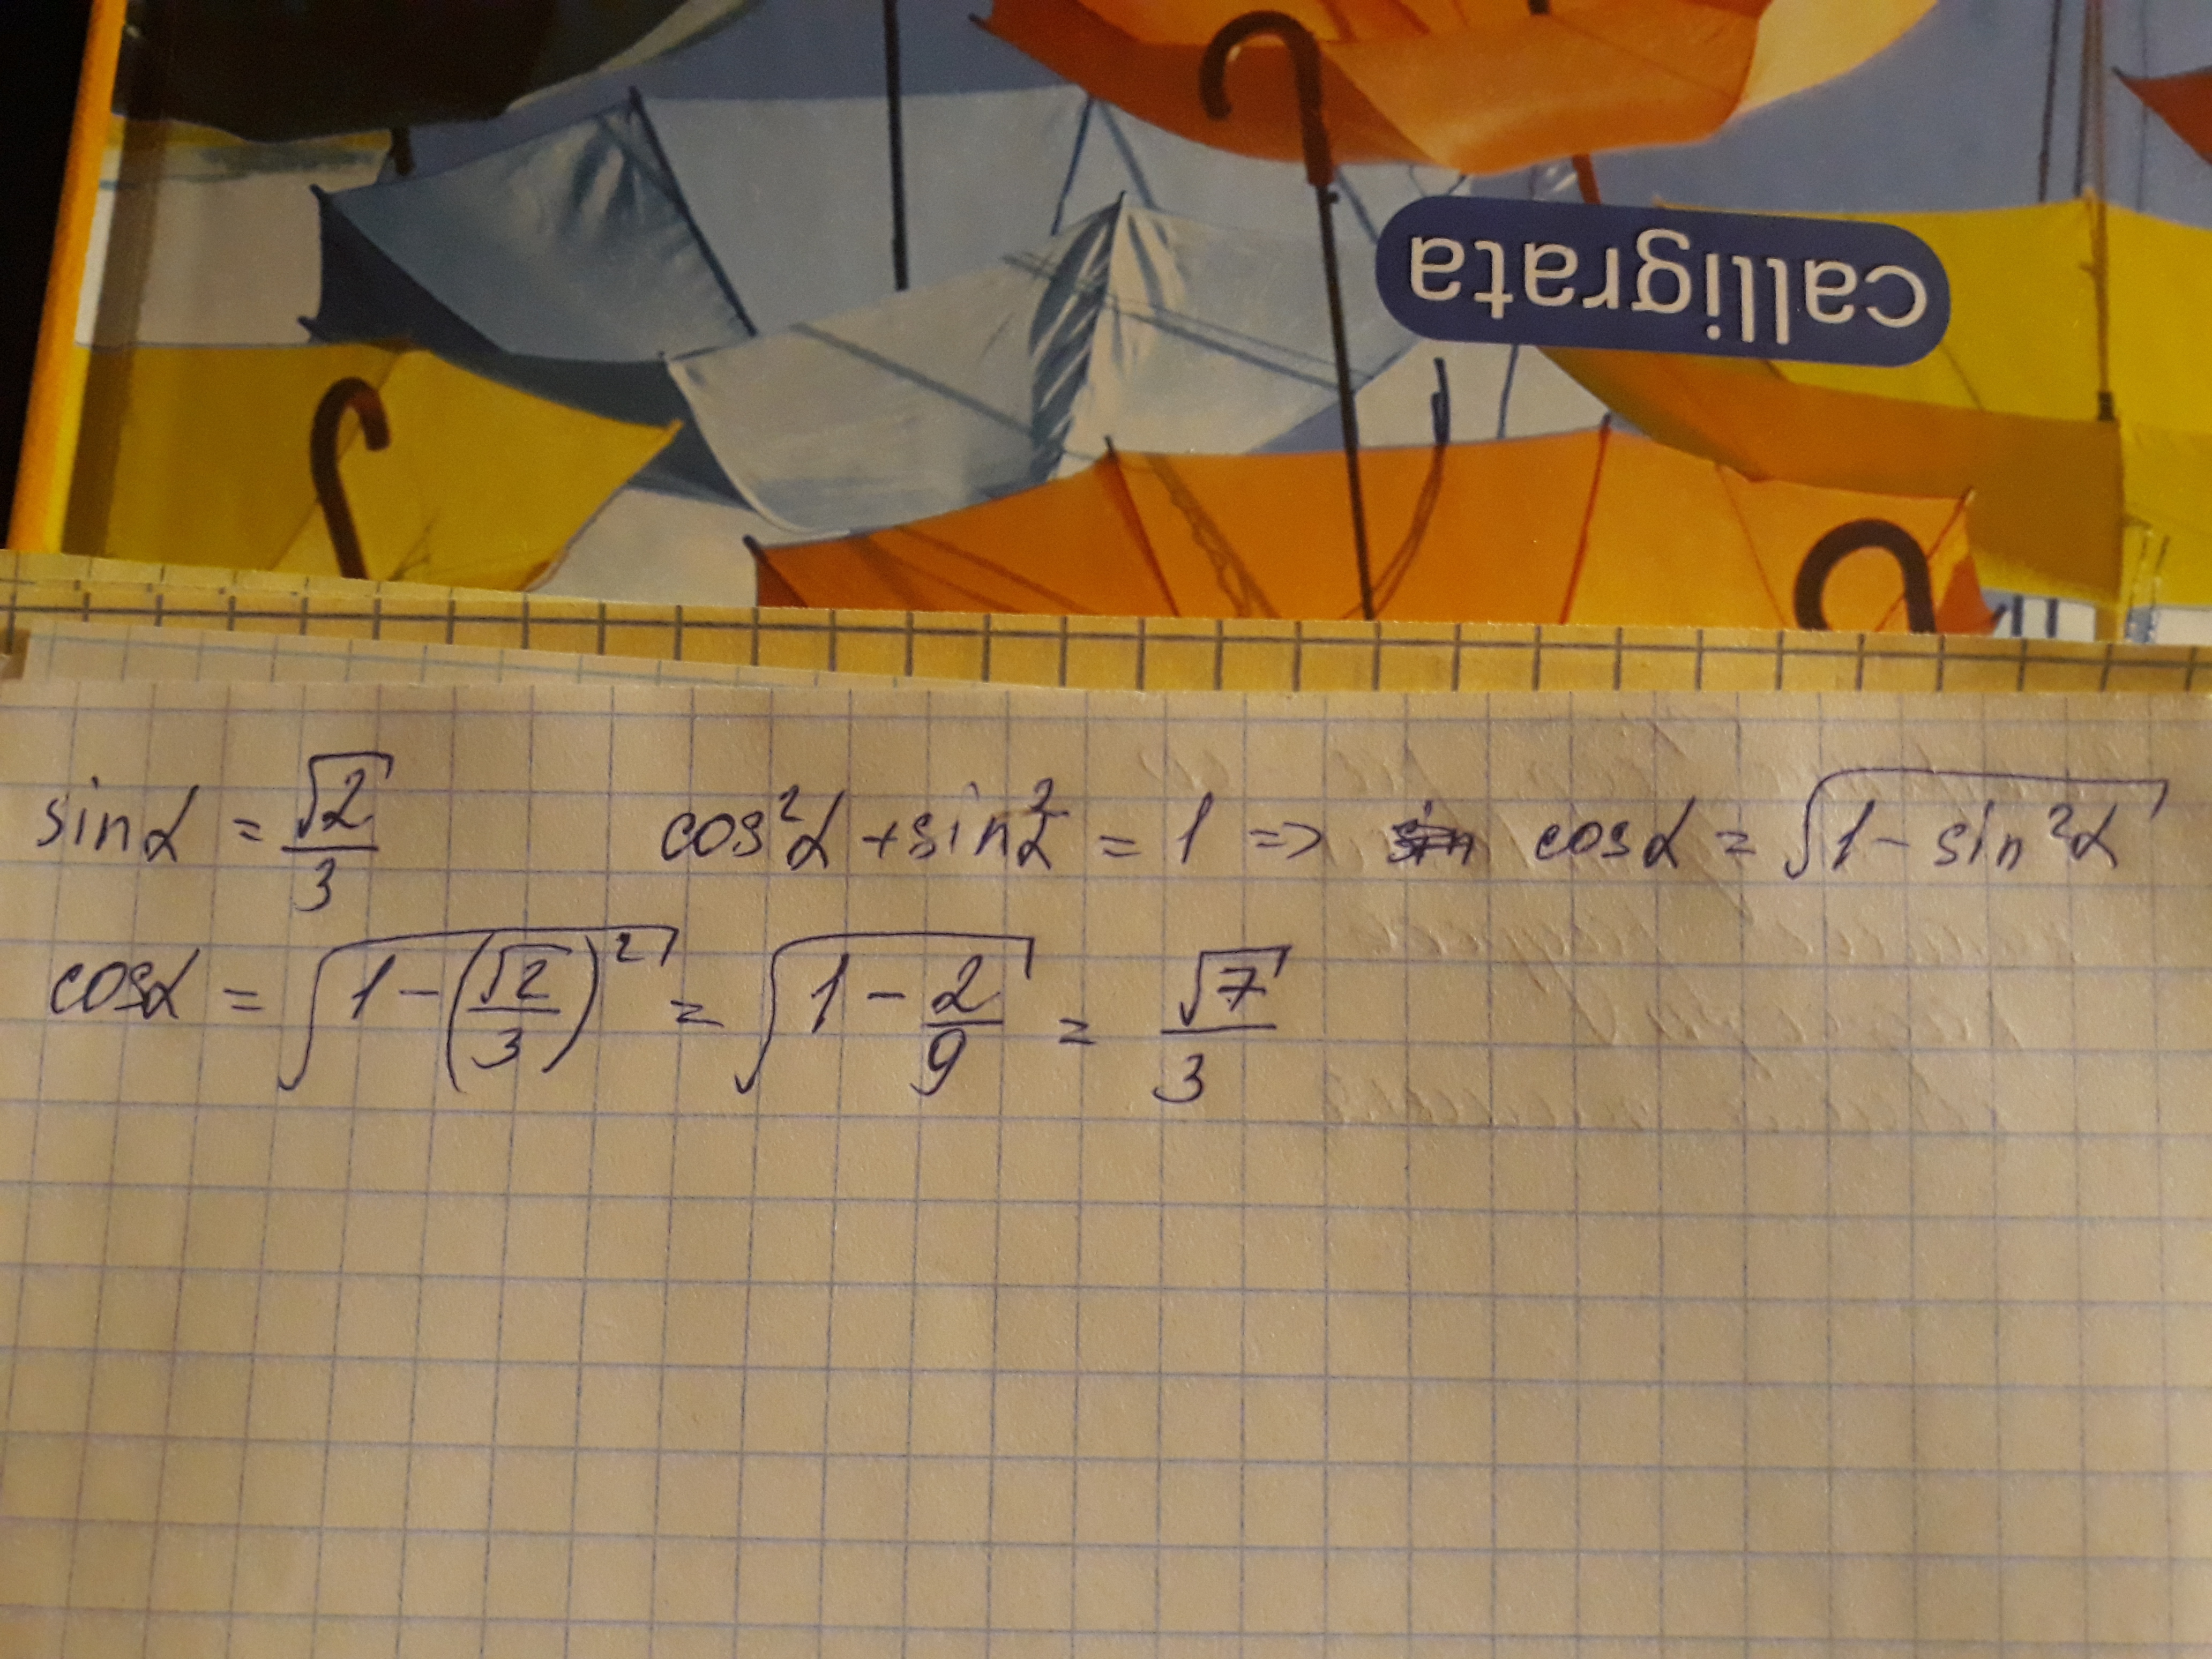 calligrata
sinα = √2/3 cos²α + sin²α = 1 => sin cosα = √(1 - sin²α)
cosα = √(1 - (√2/3)²) = √(1 - 2/9) = √7/3